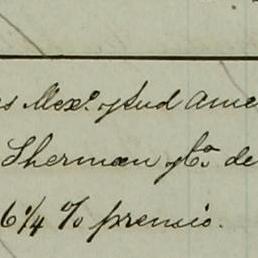 s Mexº. y Sud Ame
Sherman y Cª. de
6 1/4 % premio.